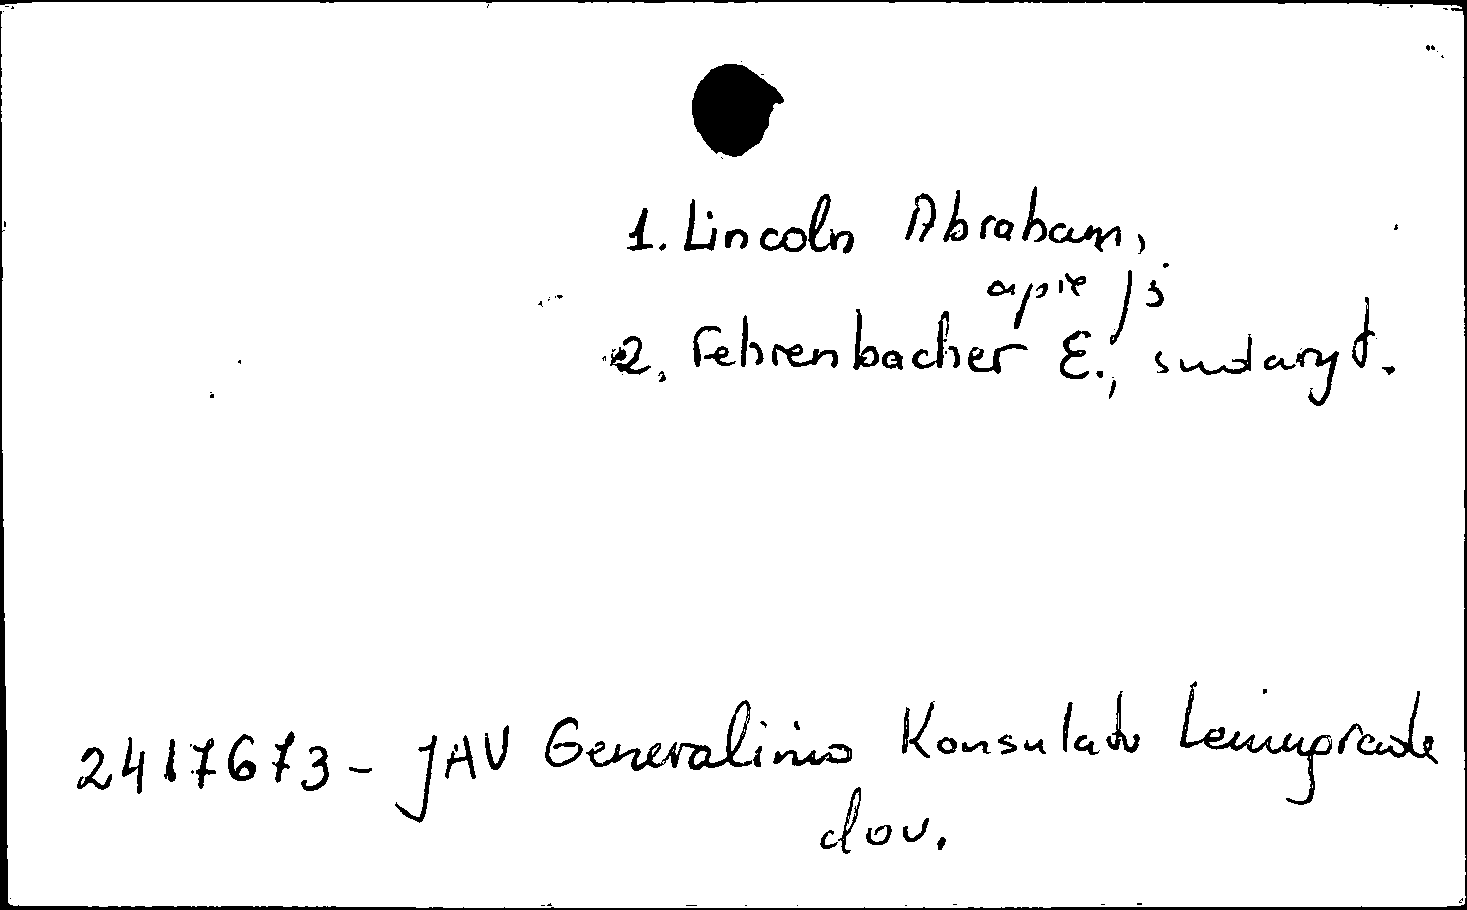 1. Lincoln Abraham,
apie jį
2. Fehrenbacher E., sudaryt.
2417673 - JAV Generalinio Konsulato Leningrade
dov.